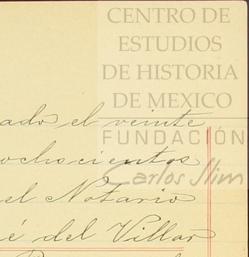 CENTRO DE
ESTUDIOS
DE HISTORIA
DE MEXICO
ado el veinte
FUNDACIÓN
ochocientos
Carlos Slim
el Notario
é del Villar